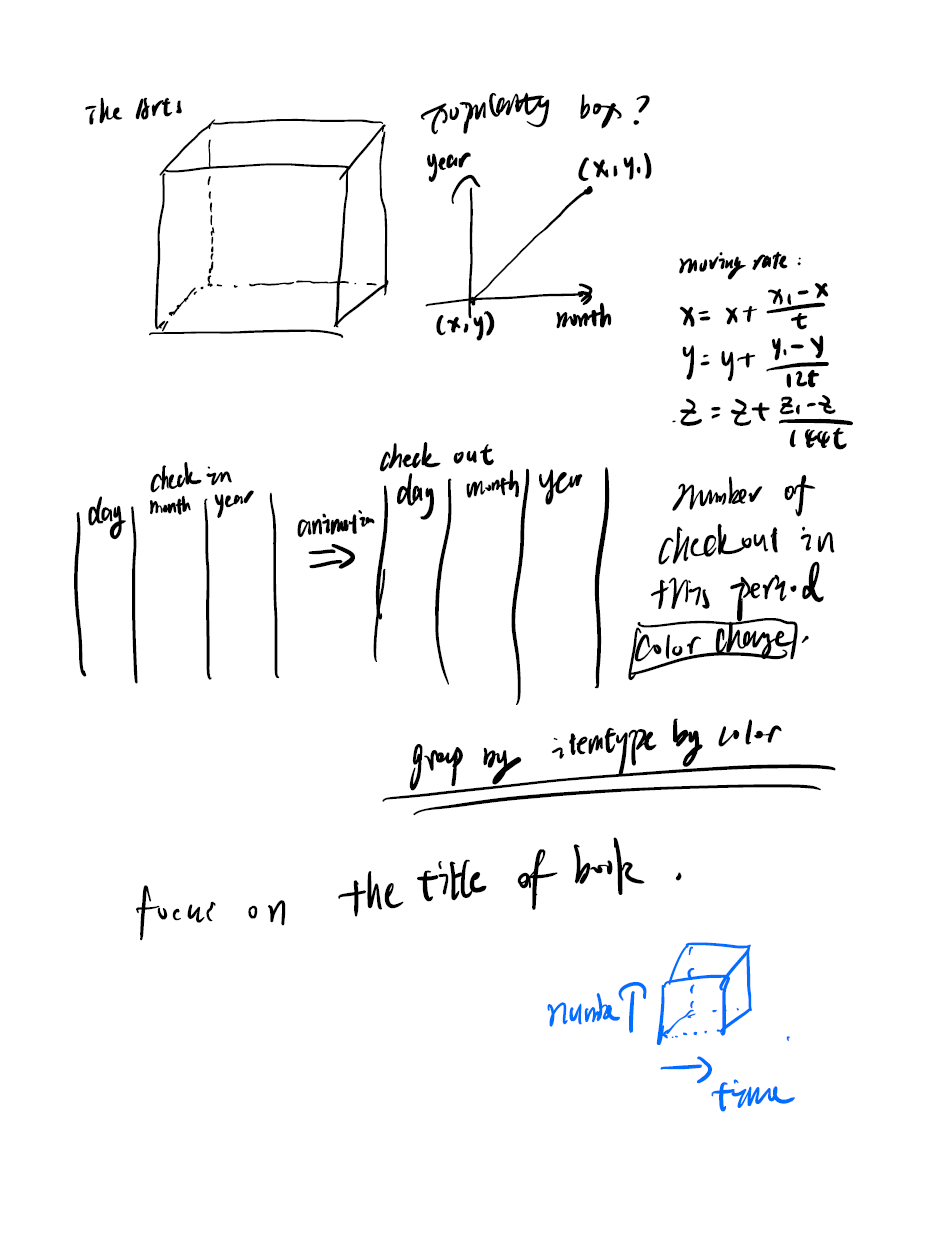 The Arts
Popularity box?
year
(x₁, y₁)
(x, y)
month
moving rate:
x = x + (x₁ - x)/t
y = y + (y₁ - y)/12t
z = z + (z₁ - z)/144t
check in
day month year
animation
⇒
check out
day month year
number of
checkout in
this period
color change.
group by itemtype by color
focus on the title of book.
number ↑
→
time